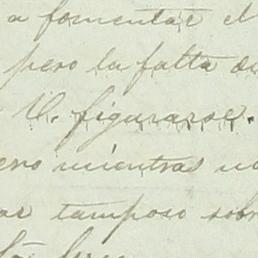 a fomentar el
pero la falta de
V. figurarse.
ero mientras no
ar tampoco sobr